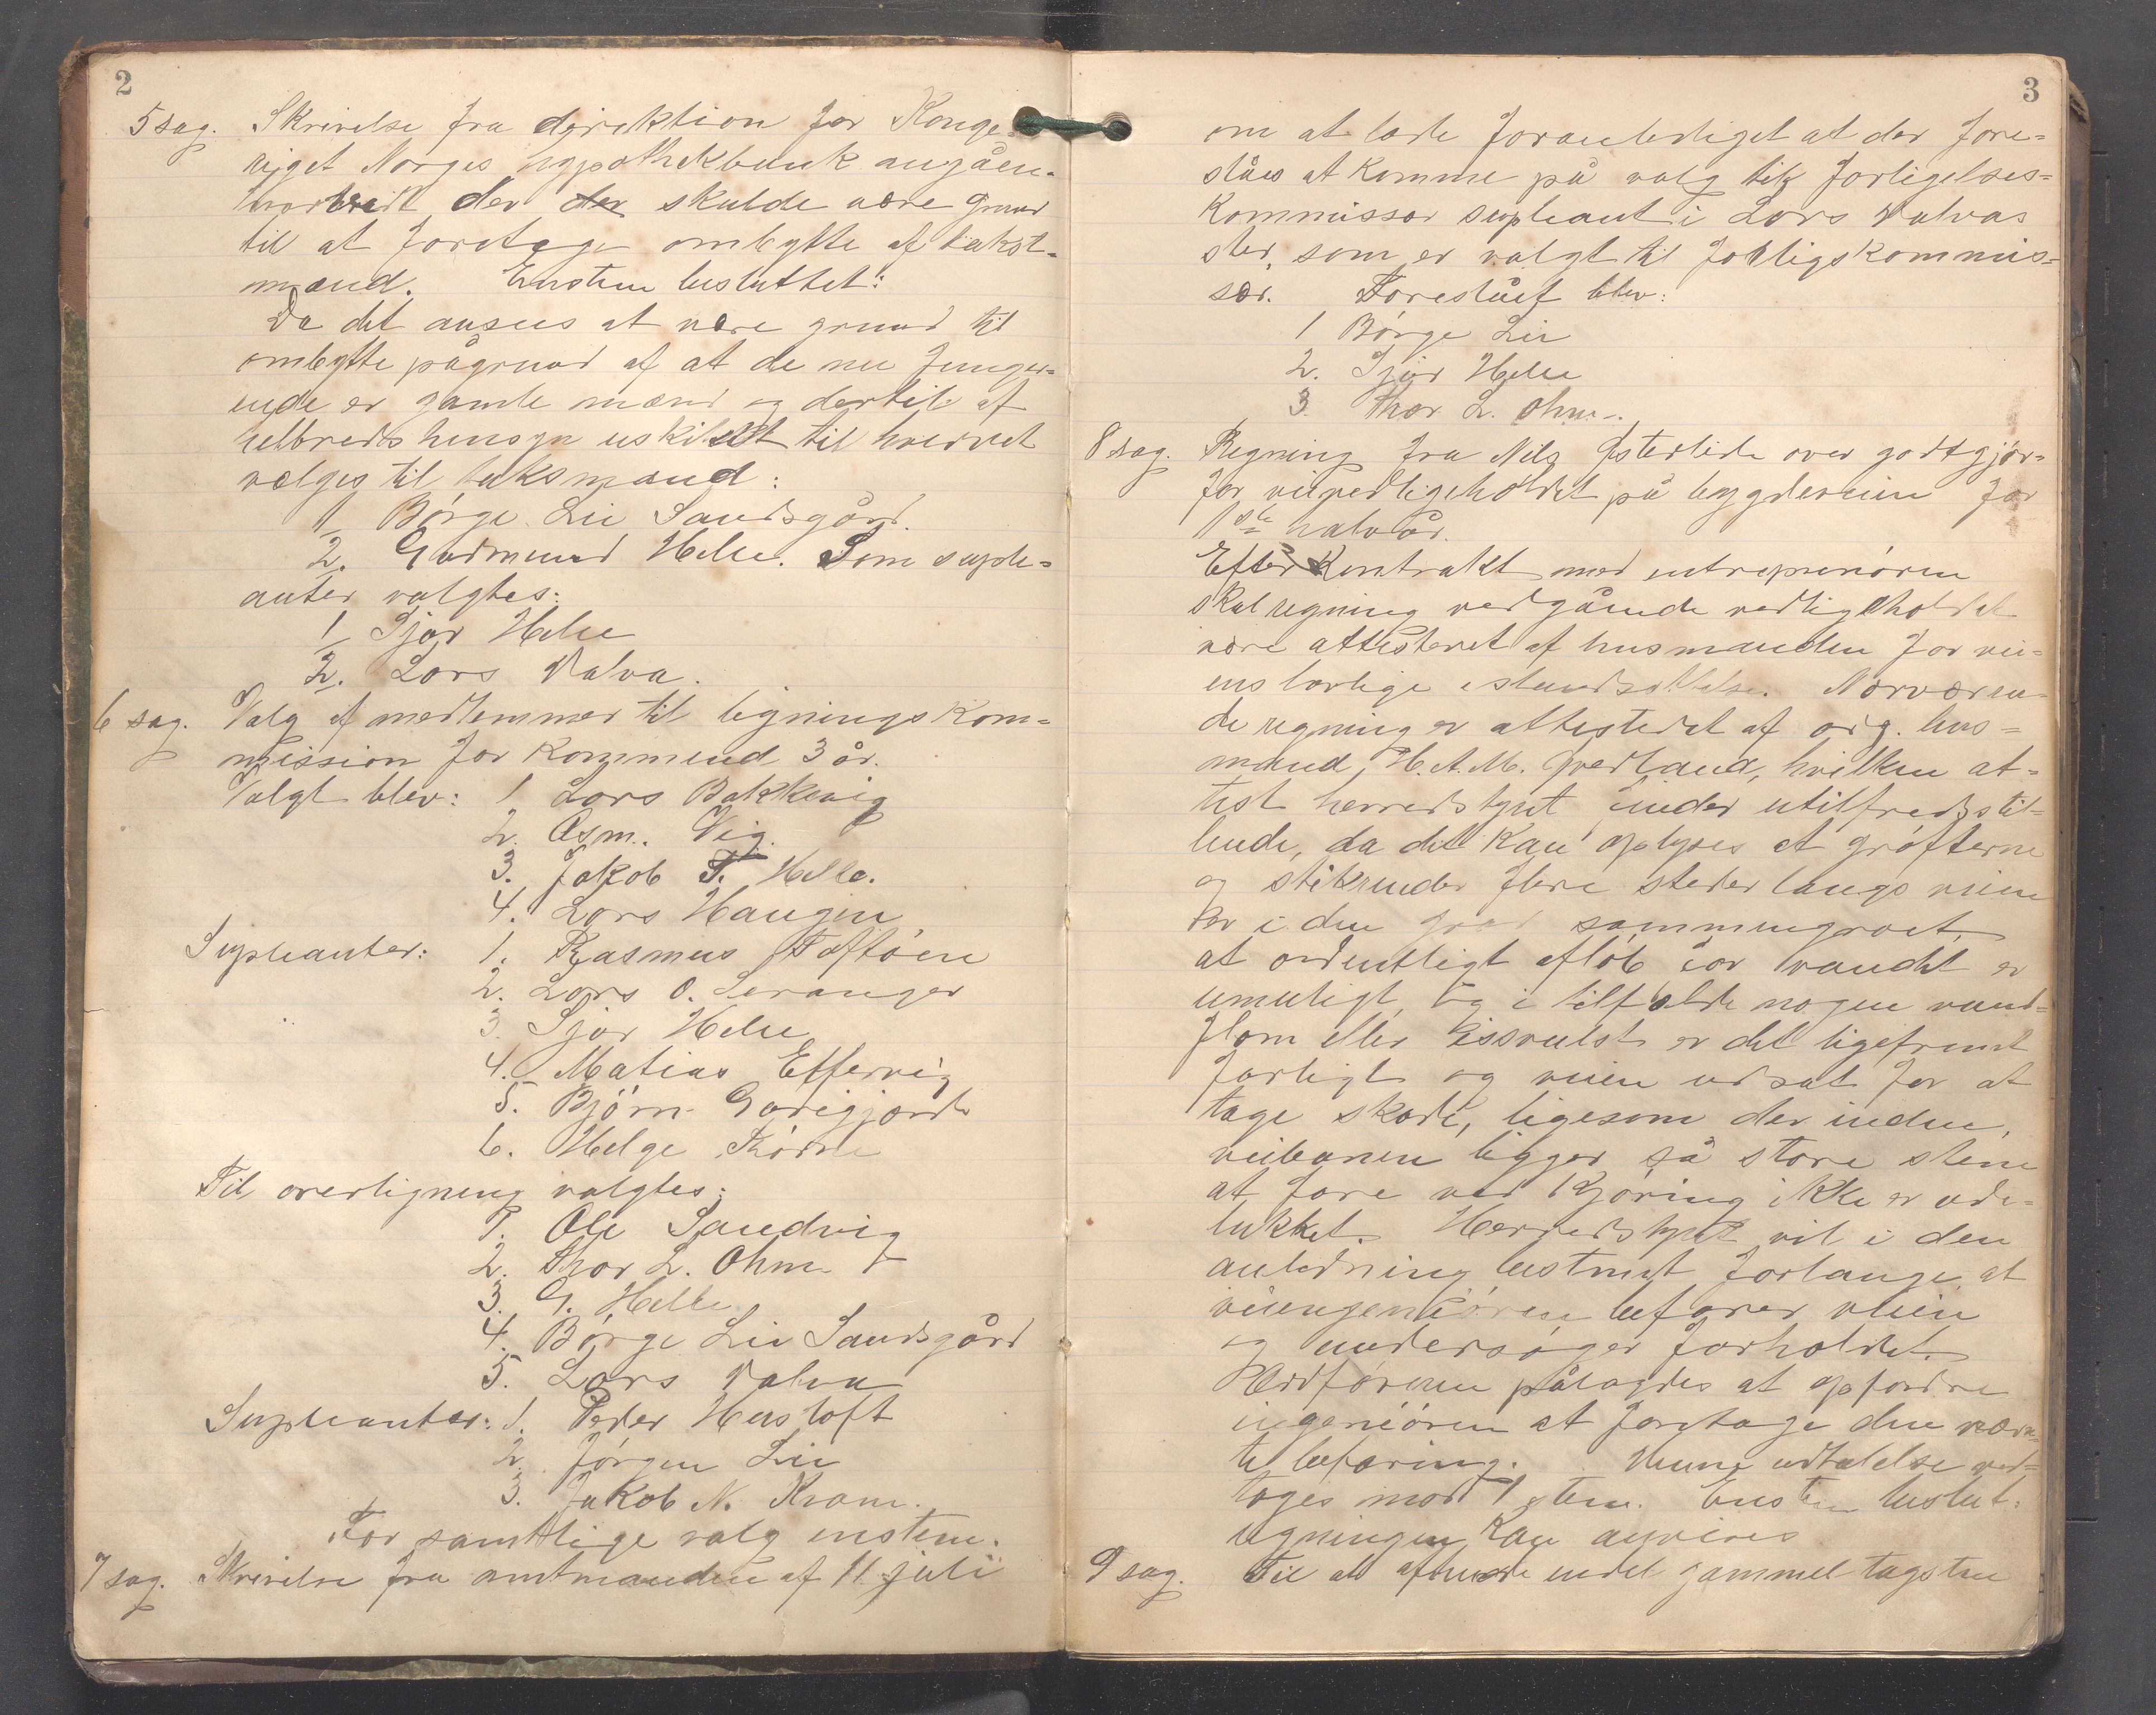 2
5 sag. Skrivelse fra direktion for Konge-
riget Norges hypothekbank angåen-
hvorvidt der der skulde være grund
til at foretage ombytte af takst-
mænd. Enstem besluttet:
Da det ansees at være grund til
ombytte pågrund af at de nu funger-
ende er gamle mænd og dertil af
helbredshensyn uskikket til hvervet
vælges til taksmænd:
1 Børge Lie Sandsgård.
2. Gudmund Helle. Som suple-
anter valgtes:
1 Sjor Helle
2. Lars Valva.
6 sag. Valg af medlemmer til ligningskom-
mission for kommend 3 år.
Valgt blev: 1 Lars Bakkevig
2. Asm. Vig.
3. Jakob T. Helle.
4. Lars Haugen
Supleanter: 1. Rasmus Toftøen
2. Lars O. Leranger
3. Sjor Helle
4. Matias Eftervig
5. Bjørn
6. Helge
Til overligning valgtes:
1. Ole Sandvig
2. Thor L. Ohm
3. G. Helle
4. Børge Lie Sandsgård
5. Lars Valva
Supleanter: 1. Peder Hustoft
2. Jørgen Lie
3. Jakob N. Kram.
For samtlige valg enstem.
7 sag. Skrivelse fra amtmanden af 11 juli
3
om at lade foranlediget at der fore-
slåes at komme på valg til forligelses-
kommissær supleant i Lars Valvas
sted, som er valgt til forligskommis-
sær. Foreslået blev:
1 Børge Lie
2. Sjur Helle
3. Thor L. Ohm.
8 sag. Regning fra Nils Østerlide over godtgjør-
for veivedligeholdet på bygdeveien for
1ste halvår.
Efter Kontrakt med entreprenøren
skal regning vedgående vedligeholdet
være attesteret af husmanden for vei-
ens lovlige istandsættelse. Nærværen-
de regning er attesteret af  hus-
mand H. A. M. Gvedland, hvilken at-
test herredstyret finder utilfredsstil-
lende, da det kan oplyses at grøfterne
og stikrender flere steder langs veien
er i den grad sammengroet,
at ordentligt afløb for vandet er
umuligt, og i tilfælde nogen vand-
flom eller issvulst er det ligefremt
farligt og veien udsat for at
tage skade, ligesom der inden
veibanen ligger så store stene
at fare ved kjøring ikke er ude-
lukket. Herredstyret vil i den
anledning bestemt forlange at
veiingeniøren befarer veien
og undersøger forholdet.
Ordføreren pålagdes at opfordre
ingeniøren at foretage den
te befaring. Denne udtalelse ved-
toges mod 1 stem. Enstem beslut.
regningen kan anvises
9 sag. Til at afhænde endel gammel tagsten